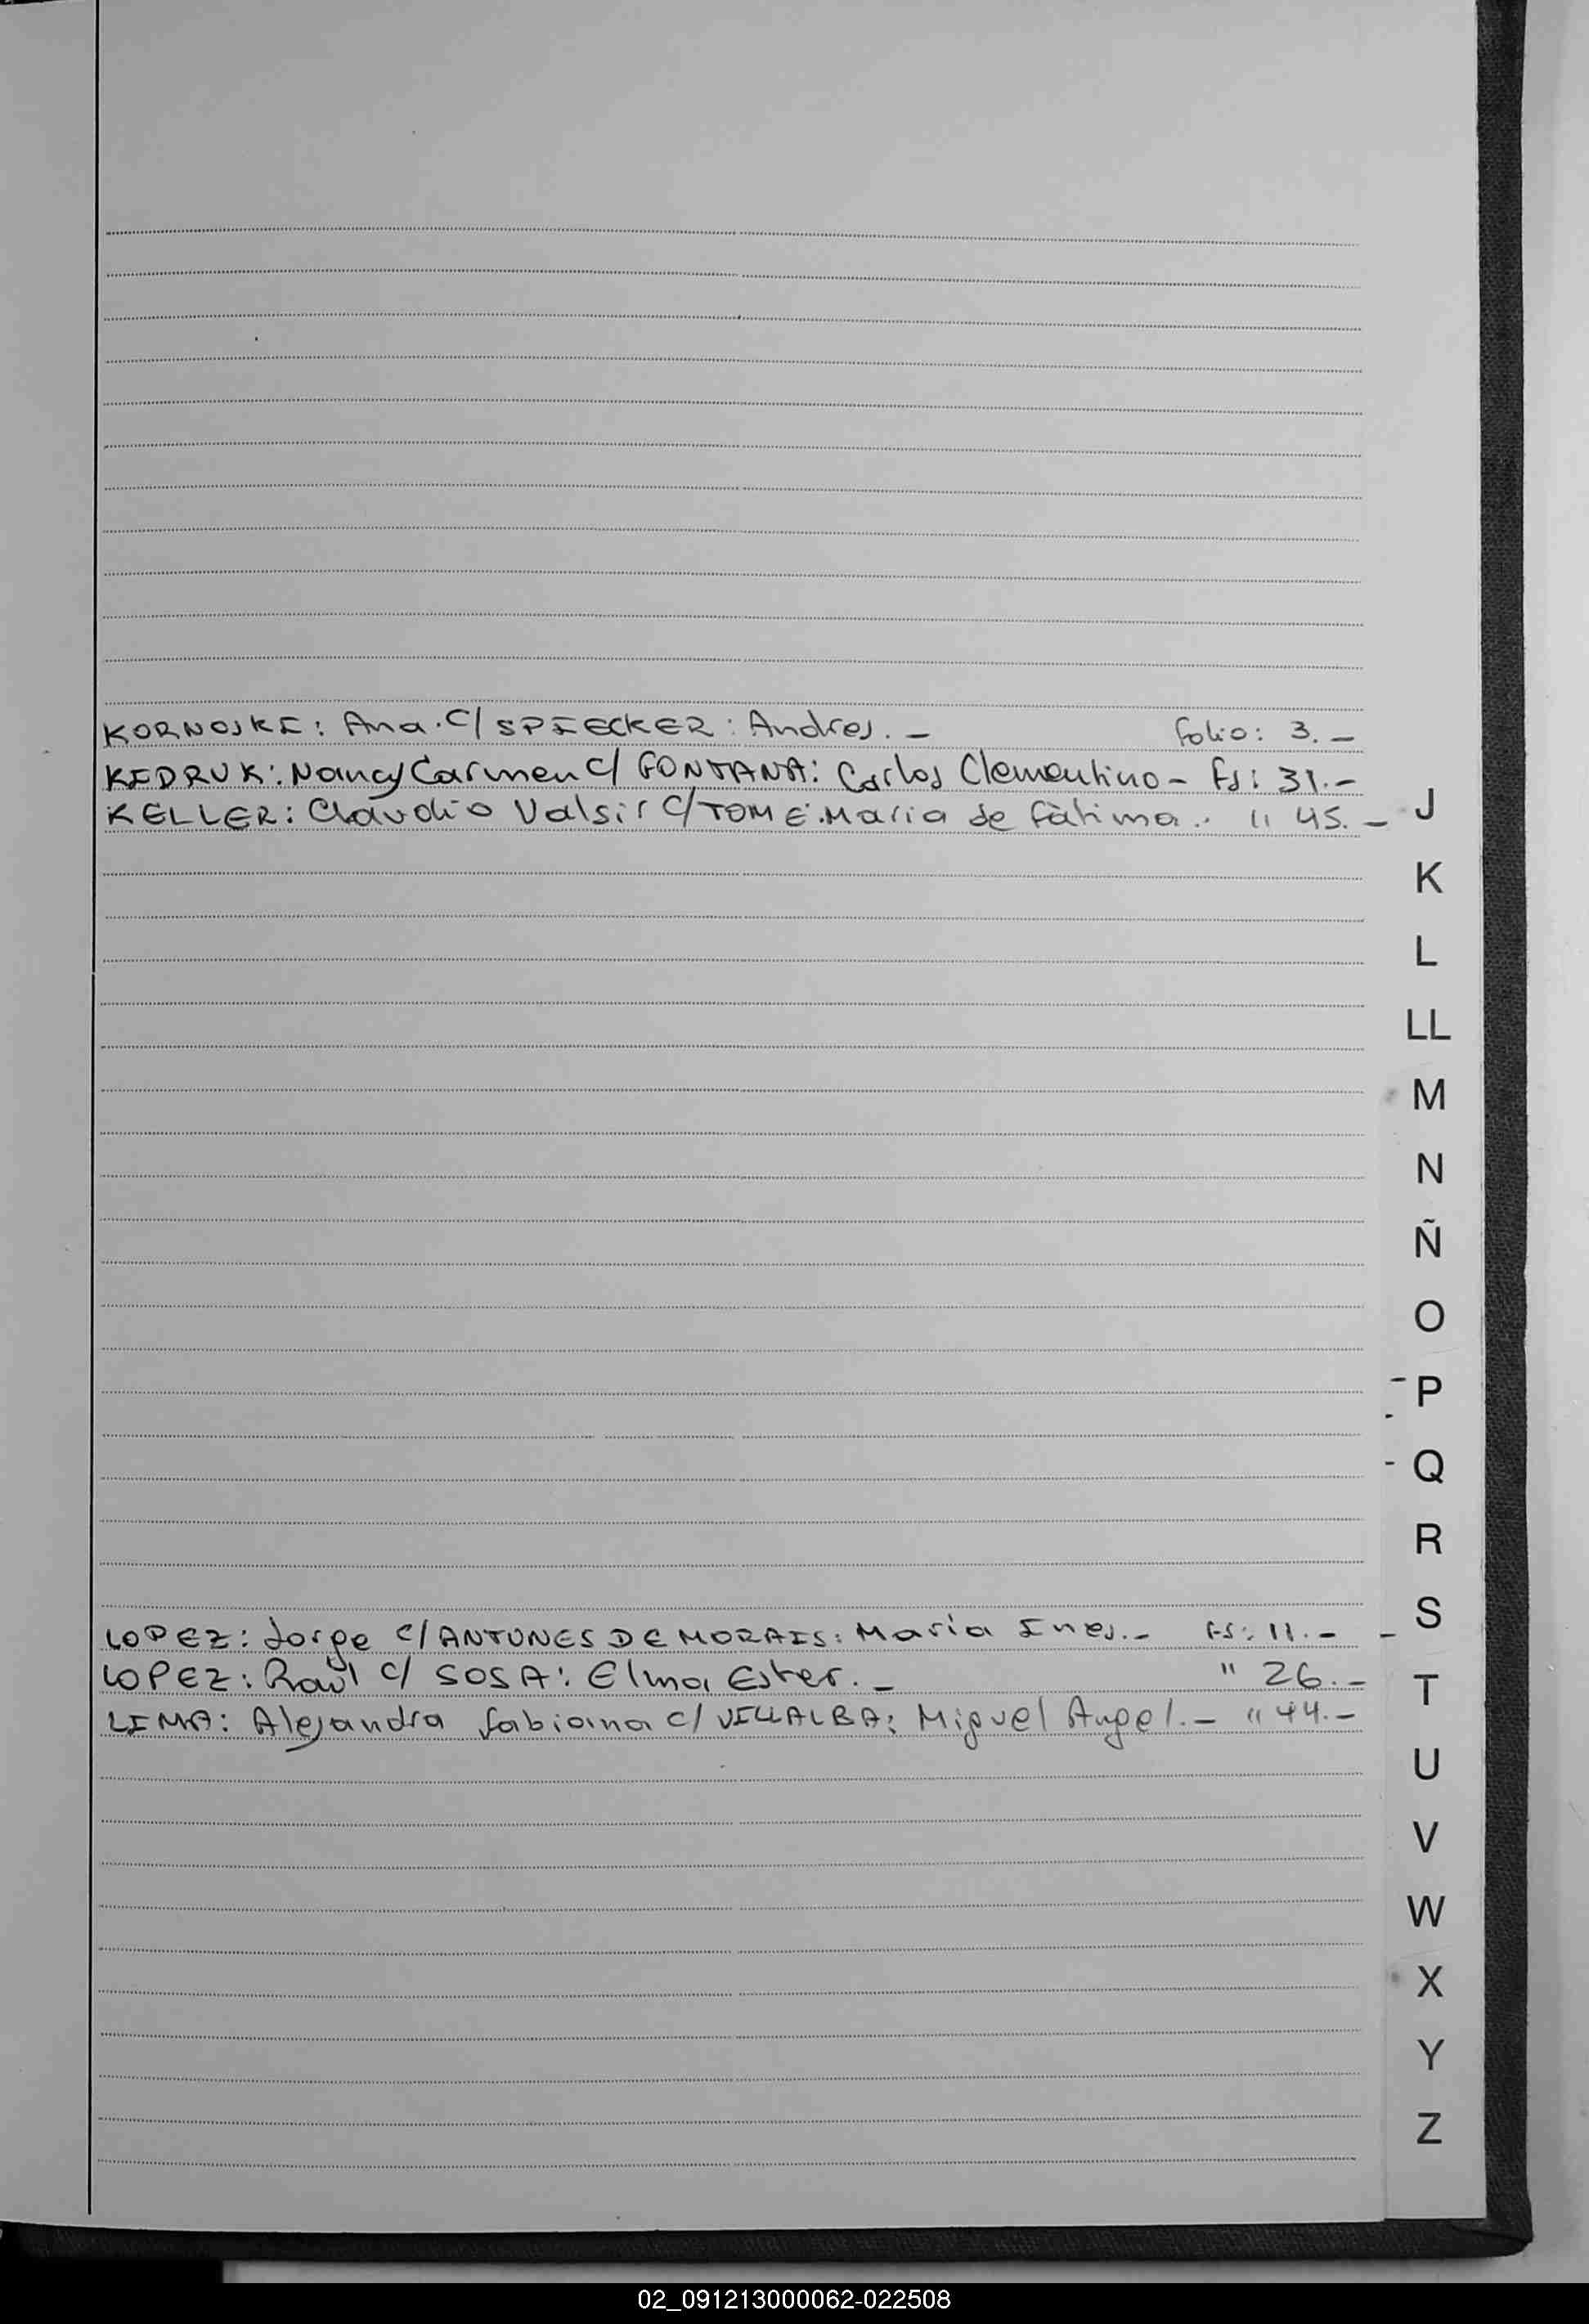 KORNOSKI: Ana. C/ SPIECKER: Andres. - folio: 3. -
KEDRUK: Nancy Carmen C/ FONTANA: Carlos Clementino - Fs: 31. -
KELLER: Claudio Valsir C/ TOME: Maria de Fàtima. " 45. -
J
K
L
LL
M
N
Ñ
O
P
Q
R
S
LOPEZ: Jorge C/ ANTUNES DE MORAIS: Maria Ines. - Fs: 11. -
LOPEZ: Raùl C/ SOSA: Elma Ester. - " 26. -
T
LIMA: Alejandra fabiana C/ VILLALBA: Miguel Angel. - " 44. -
U
V
W
X
Y
Z
02_091213000062-022508